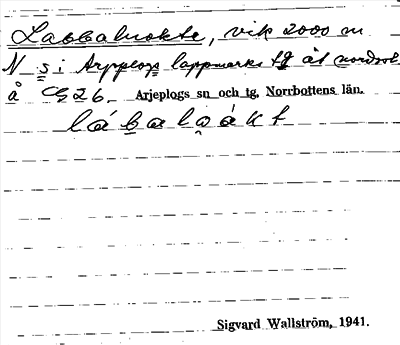 Labbaluokte, vik 2000 m
N s i Arjeplogs lappmarks tg åt nordost
å CG 26. Arjeplogs sn och tg, Norrbottens län.
Sigvard Wallström, 1941.